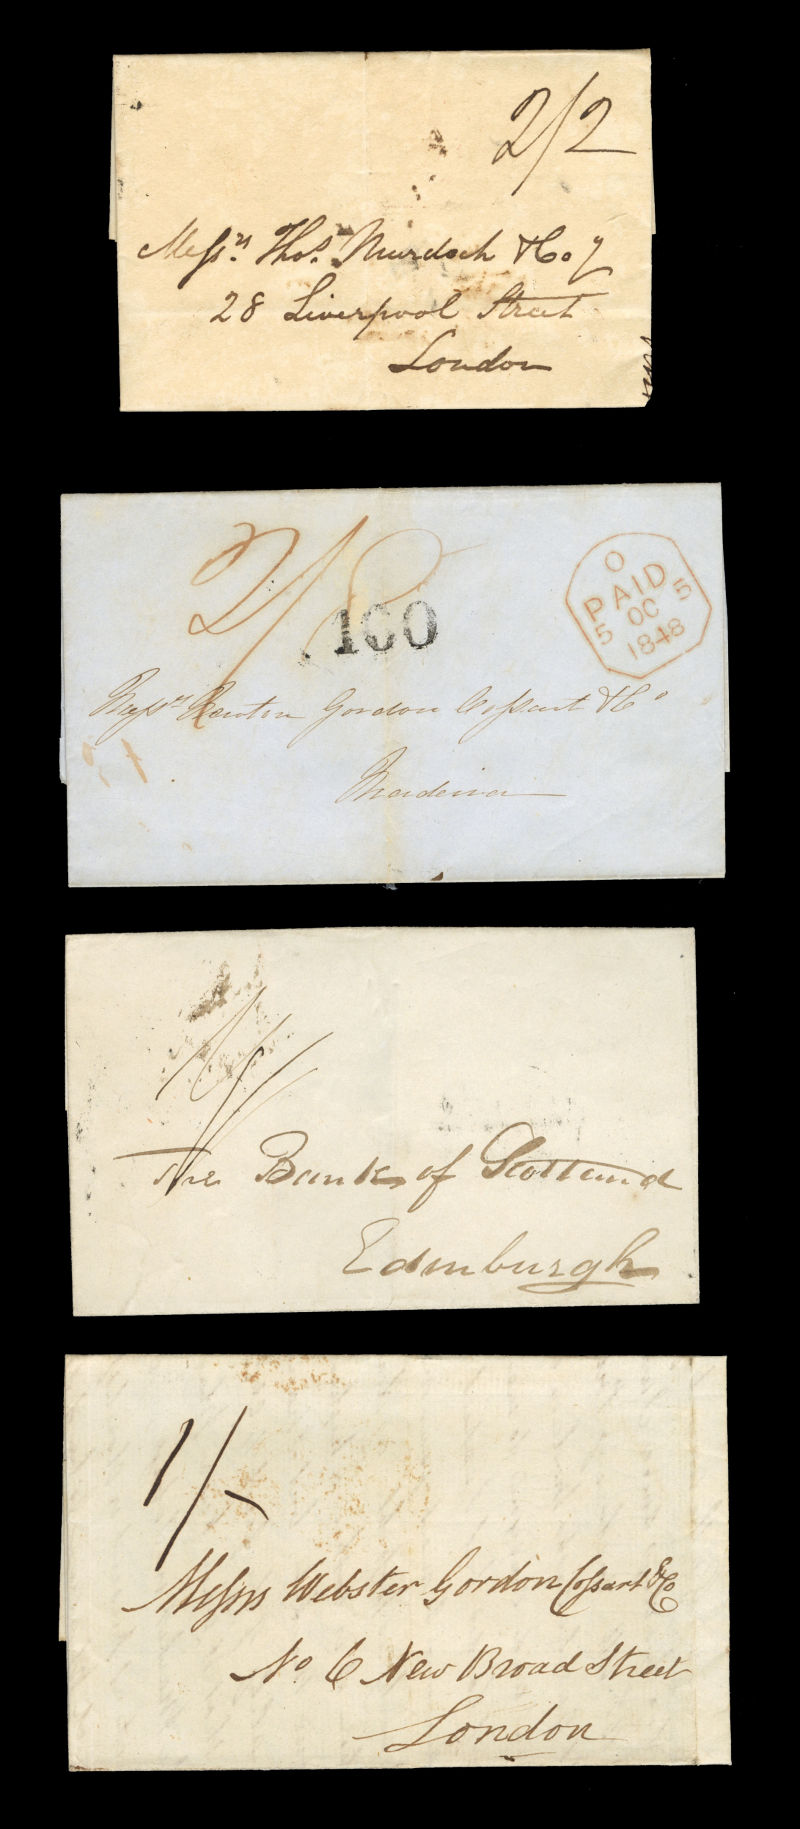 2/2
Messrs. Thos. Murdoch & Co y
28 Liverpool Street
London
2/8
160
O
PAID
5 OC 5
1848
Messrs Newton Gordon Cossart & Co
Madeira
The Bank of Scotland
Edinburgh
1/-
Messrs Webster Gordon Cossart & Co
No. 6 New Broad Street
London